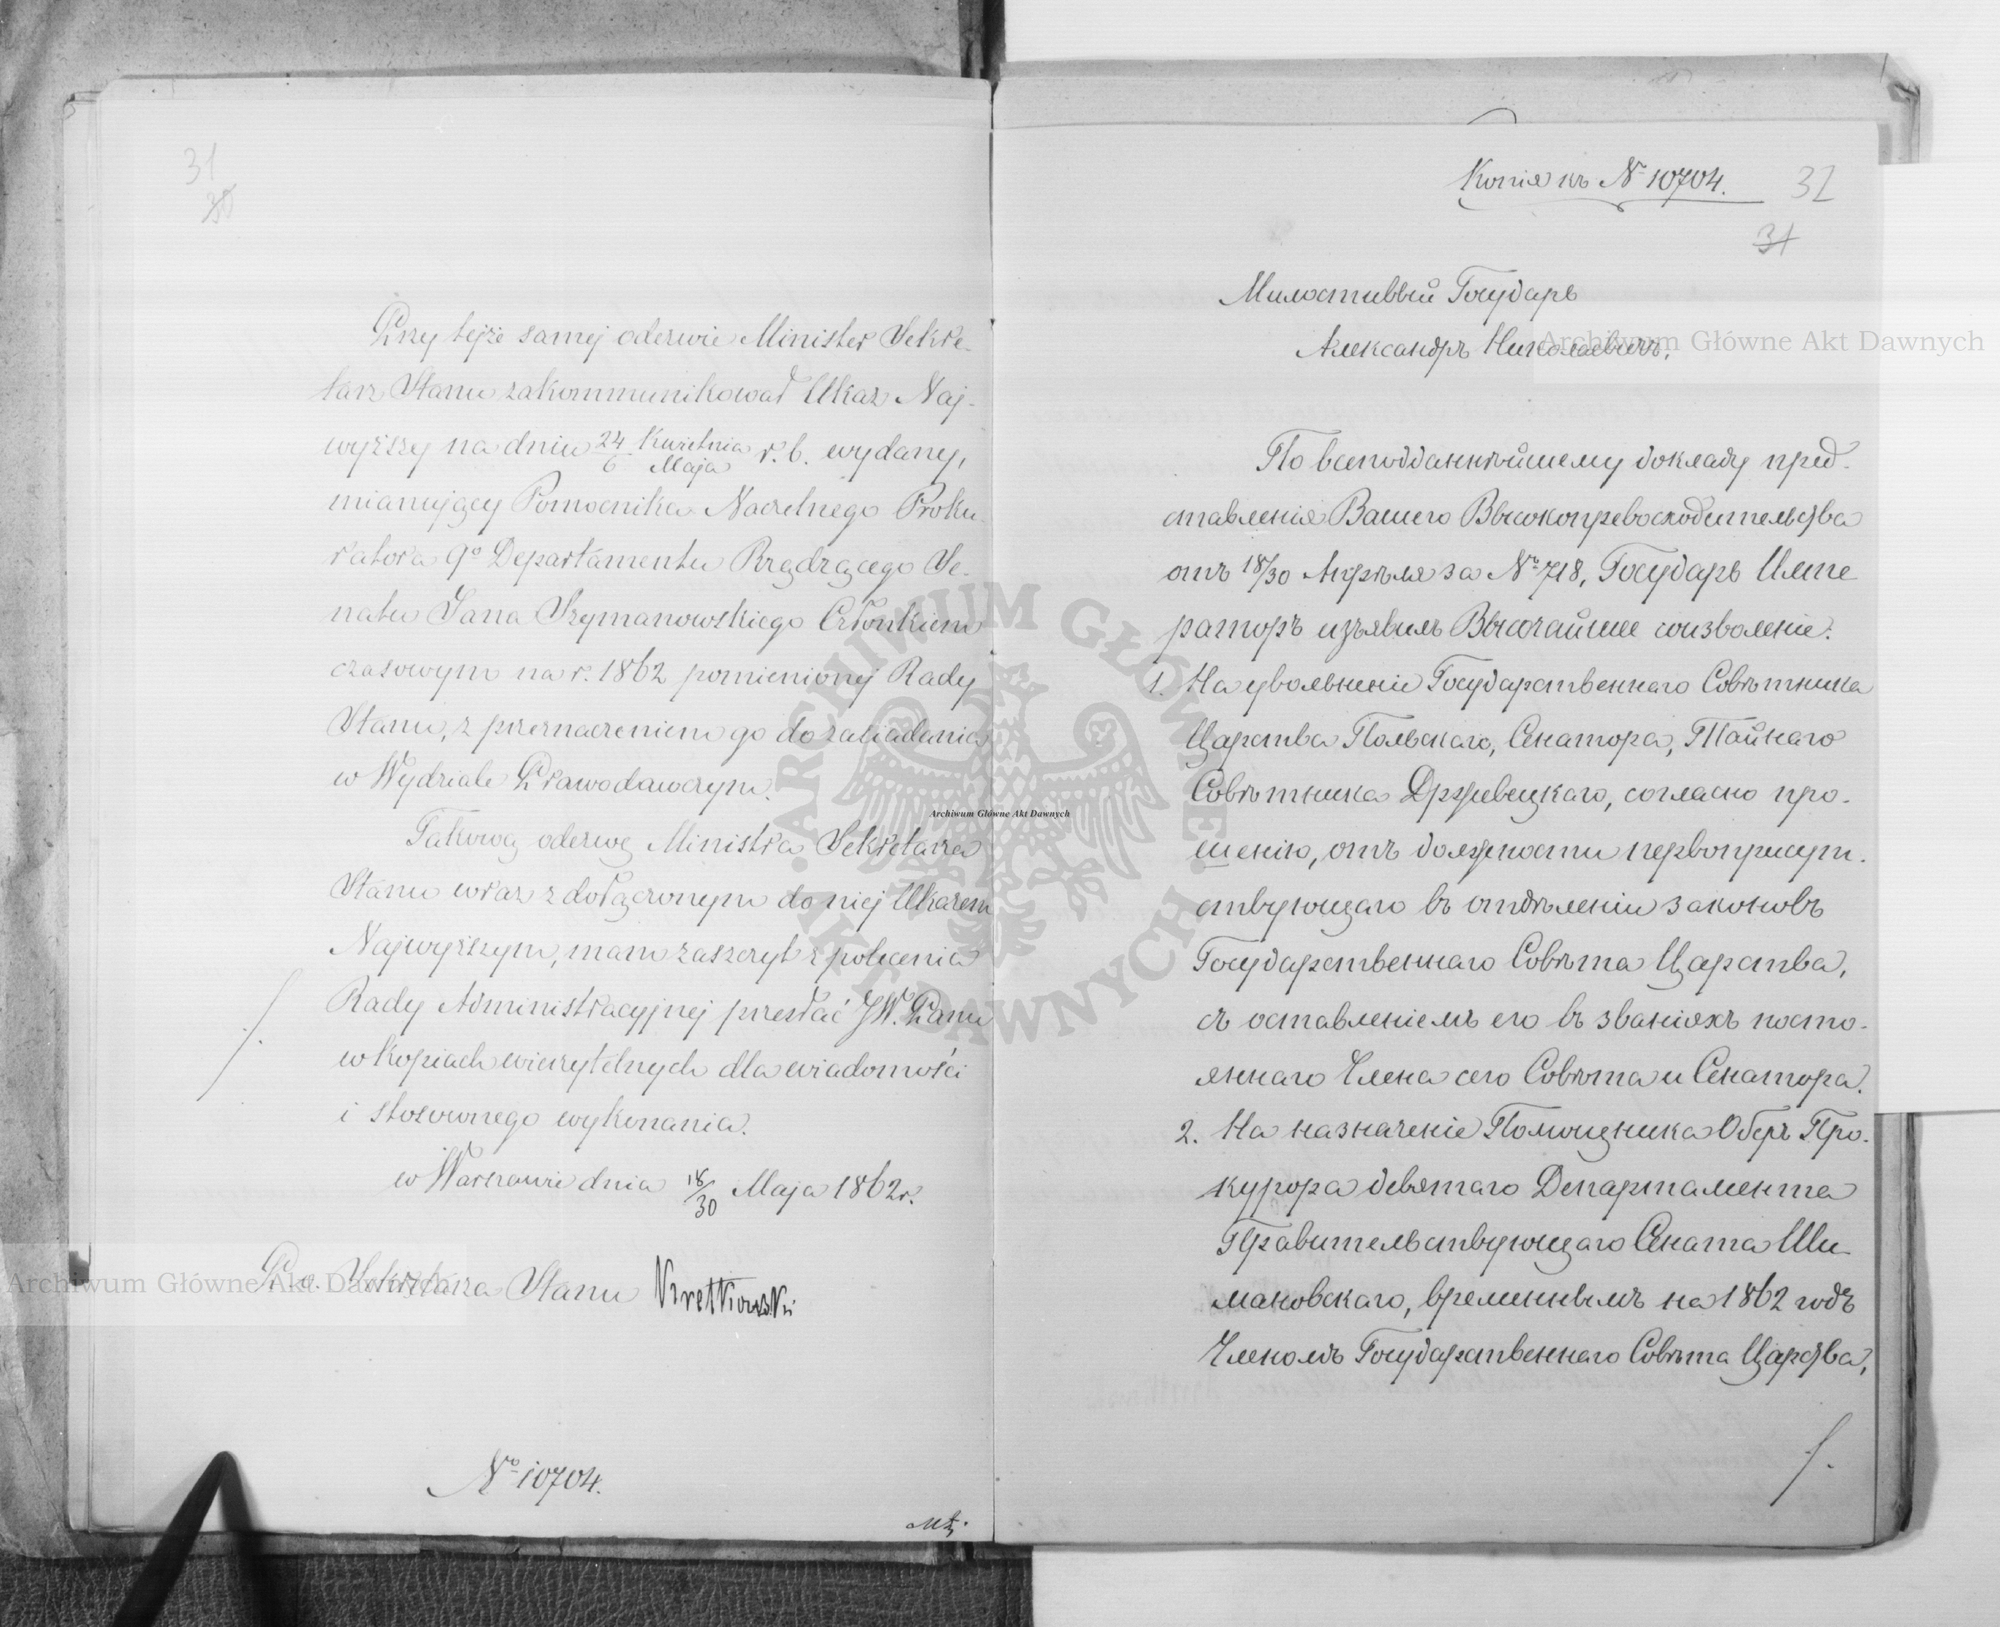 31
30
Przy tejże samej odezwie Minister Sekre-
tarz Stanu zakommunikował Ukaz Naj-
wyższy na dniu 24 Kwietnia / 6 Maja r. b. wydany,
mianujący Pomocnika Naczelnego Proku-
ratora 9º Departamentu Rządzącego Se-
natu Jana Szymanowskiego Członkiem
czasowym na r. 1862 pomienionej Rady
Stanu, z przeznaczeniem go do zasiadania
w Wydziale Prawodawczym.
Takową odezwę Ministra Sekretarza
Stanu wraz z dołączonym do niej Ukazem
Najwyższym, mam zaszczyt z polecenia
Rady Administracyjnej przesłać JW. Panu
w kopiach wierzytelnych dla wiadomości
i stosownego wykonania.
w Warszawie dnia 18/30 Maja 1862 r.
P. o. Sekretarza Stanu Kretkowski
Nº 10704.
Копія къ № 10704.
32
31
Милостивый Государь
Александръ Николаевичъ,
По всеподданнѣйшему докладу пред-
ставленія Вашего Высокопревосходительства
отъ 18/30 Апрѣля за № 718, Государь Импе
раторъ изъявилъ Высочайшее соизволеніе:
1. На увольненіе Государственнаго Совѣтника
Царства Польскаго, Сенатора, Тайнаго
Совѣтника Држевецкаго, согласно про-
шенію, отъ должности первоприсут-
ствующаго въ отдѣленіи законовъ
Государственнаго Совѣта Царства,
съ оставленіемъ его въ званіяхъ посто-
яннаго Члена сего Совѣта и Сенатора.
2. На назначеніе Помощника Оберъ Про-
курора девятаго Департамента
Правительствующаго Сената Ши-
мановскаго, временнымъ на 1862 годъ
Членомъ Государственнаго Совѣта Царства,
Archiwum Główne Akt Dawnych
Archiwum Główne Akt Dawnych
Archiwum Główne Akt Dawnych
ARCHIWUM GŁÓWNE AKT DAWNYCH